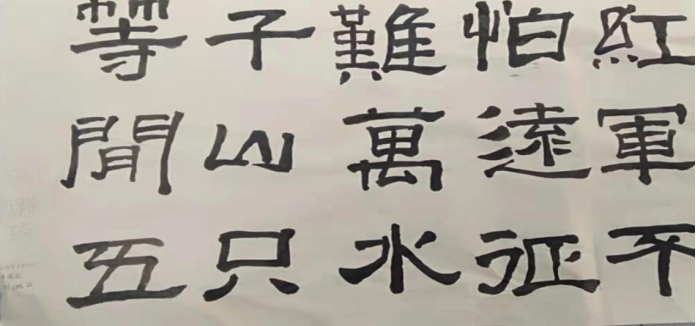 紅軍不
怕遠征
難萬水
子山只
等閒五